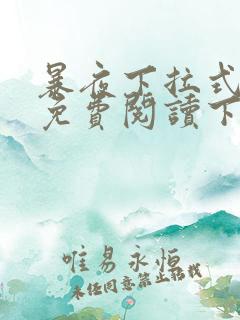 暴夜下拉式
免費閱讀下
唯易永恒
未经同意禁止转载